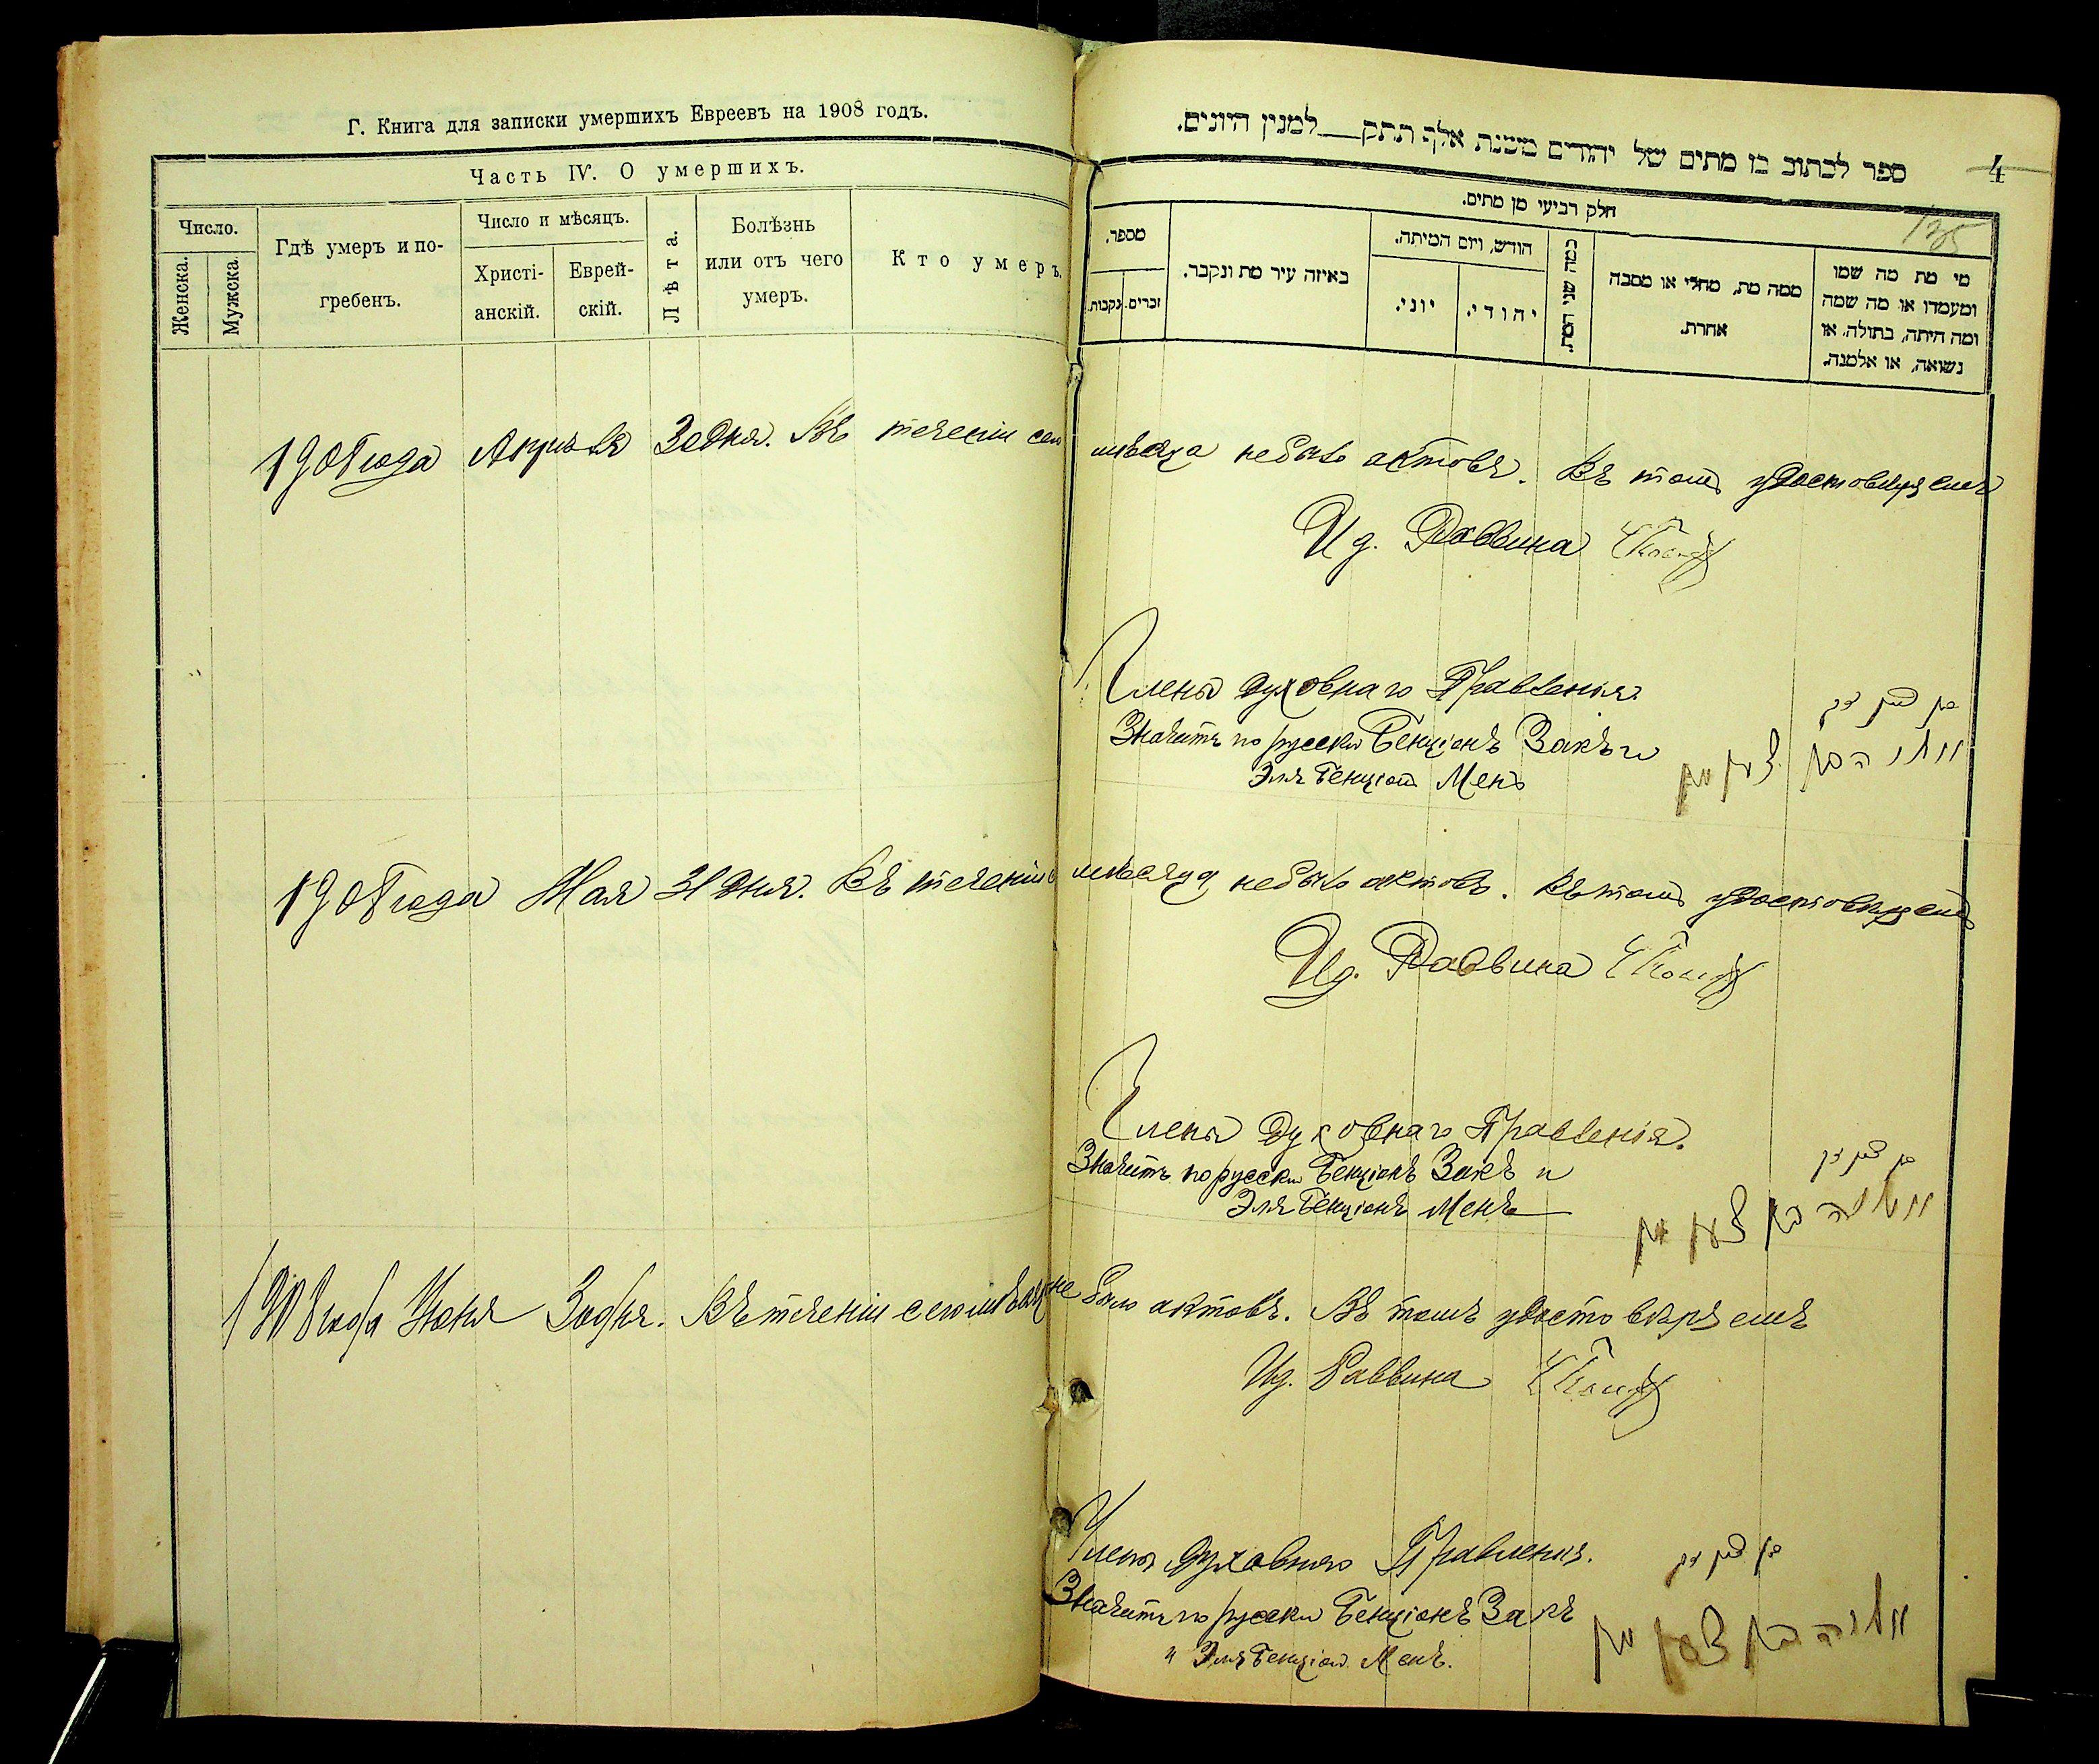 Г. Книга для записки умершихъ Евреевъ на 1908 годъ.
Часть IV. О умершихъ.
Число.
Женска.
Мужска.
Гдѣ умеръ и по-
гребенъ.
Число и мѣсяцъ.
Христі-
анскій.
Еврей-
скій.
Лѣта.
Болѣзнь
или отъ чего
умеръ.
Кто умеръ.
ספר לכתוב בו מתים של יהודים משנת אלף תתק למנין היונים.
4
135
חלק רביעי מן מתים.
מספר.
נקבות.
זכרים.
באיזה עיר מת ונקבר.
חודש, ויום המיתה.
יוני.
יהודי.
כמה שני המת.
ממה מת, מחלי או מסבה
אחרת.
מי מת מה שמו
ומעמדו או מה שמה
ומה היתה, בתולה, או
נשואה, או אלמנה.
1908 года Апрѣля 30 дня. Въ теченіи сего мѣсяца небыло актовъ. Въ томъ удостовѣряемъ
И д. Раввина
Члены духовнаго Правленія.
Значитъ по русски Бенціонъ Закъ и
Эля Бенціонъ Менъ
1908 года Мая 31 дня. Въ теченіи мѣсяца небыло актовъ. Въ томъ удостовѣряемъ
И д. Раввина
Члены духовнаго Правленія.
Значитъ по русски Бенціонъ Закъ и
Эля Бенціонъ Менъ
1908 года Іюня 30 дня. Въ теченіи сего мѣсяца не было актовъ. Въ томъ удостовѣряемъ
И д. Раввина
Члены духовнаго Правленія.
Значитъ по русски Бенціонъ Закъ
и Эля Бенціонъ Менъ.